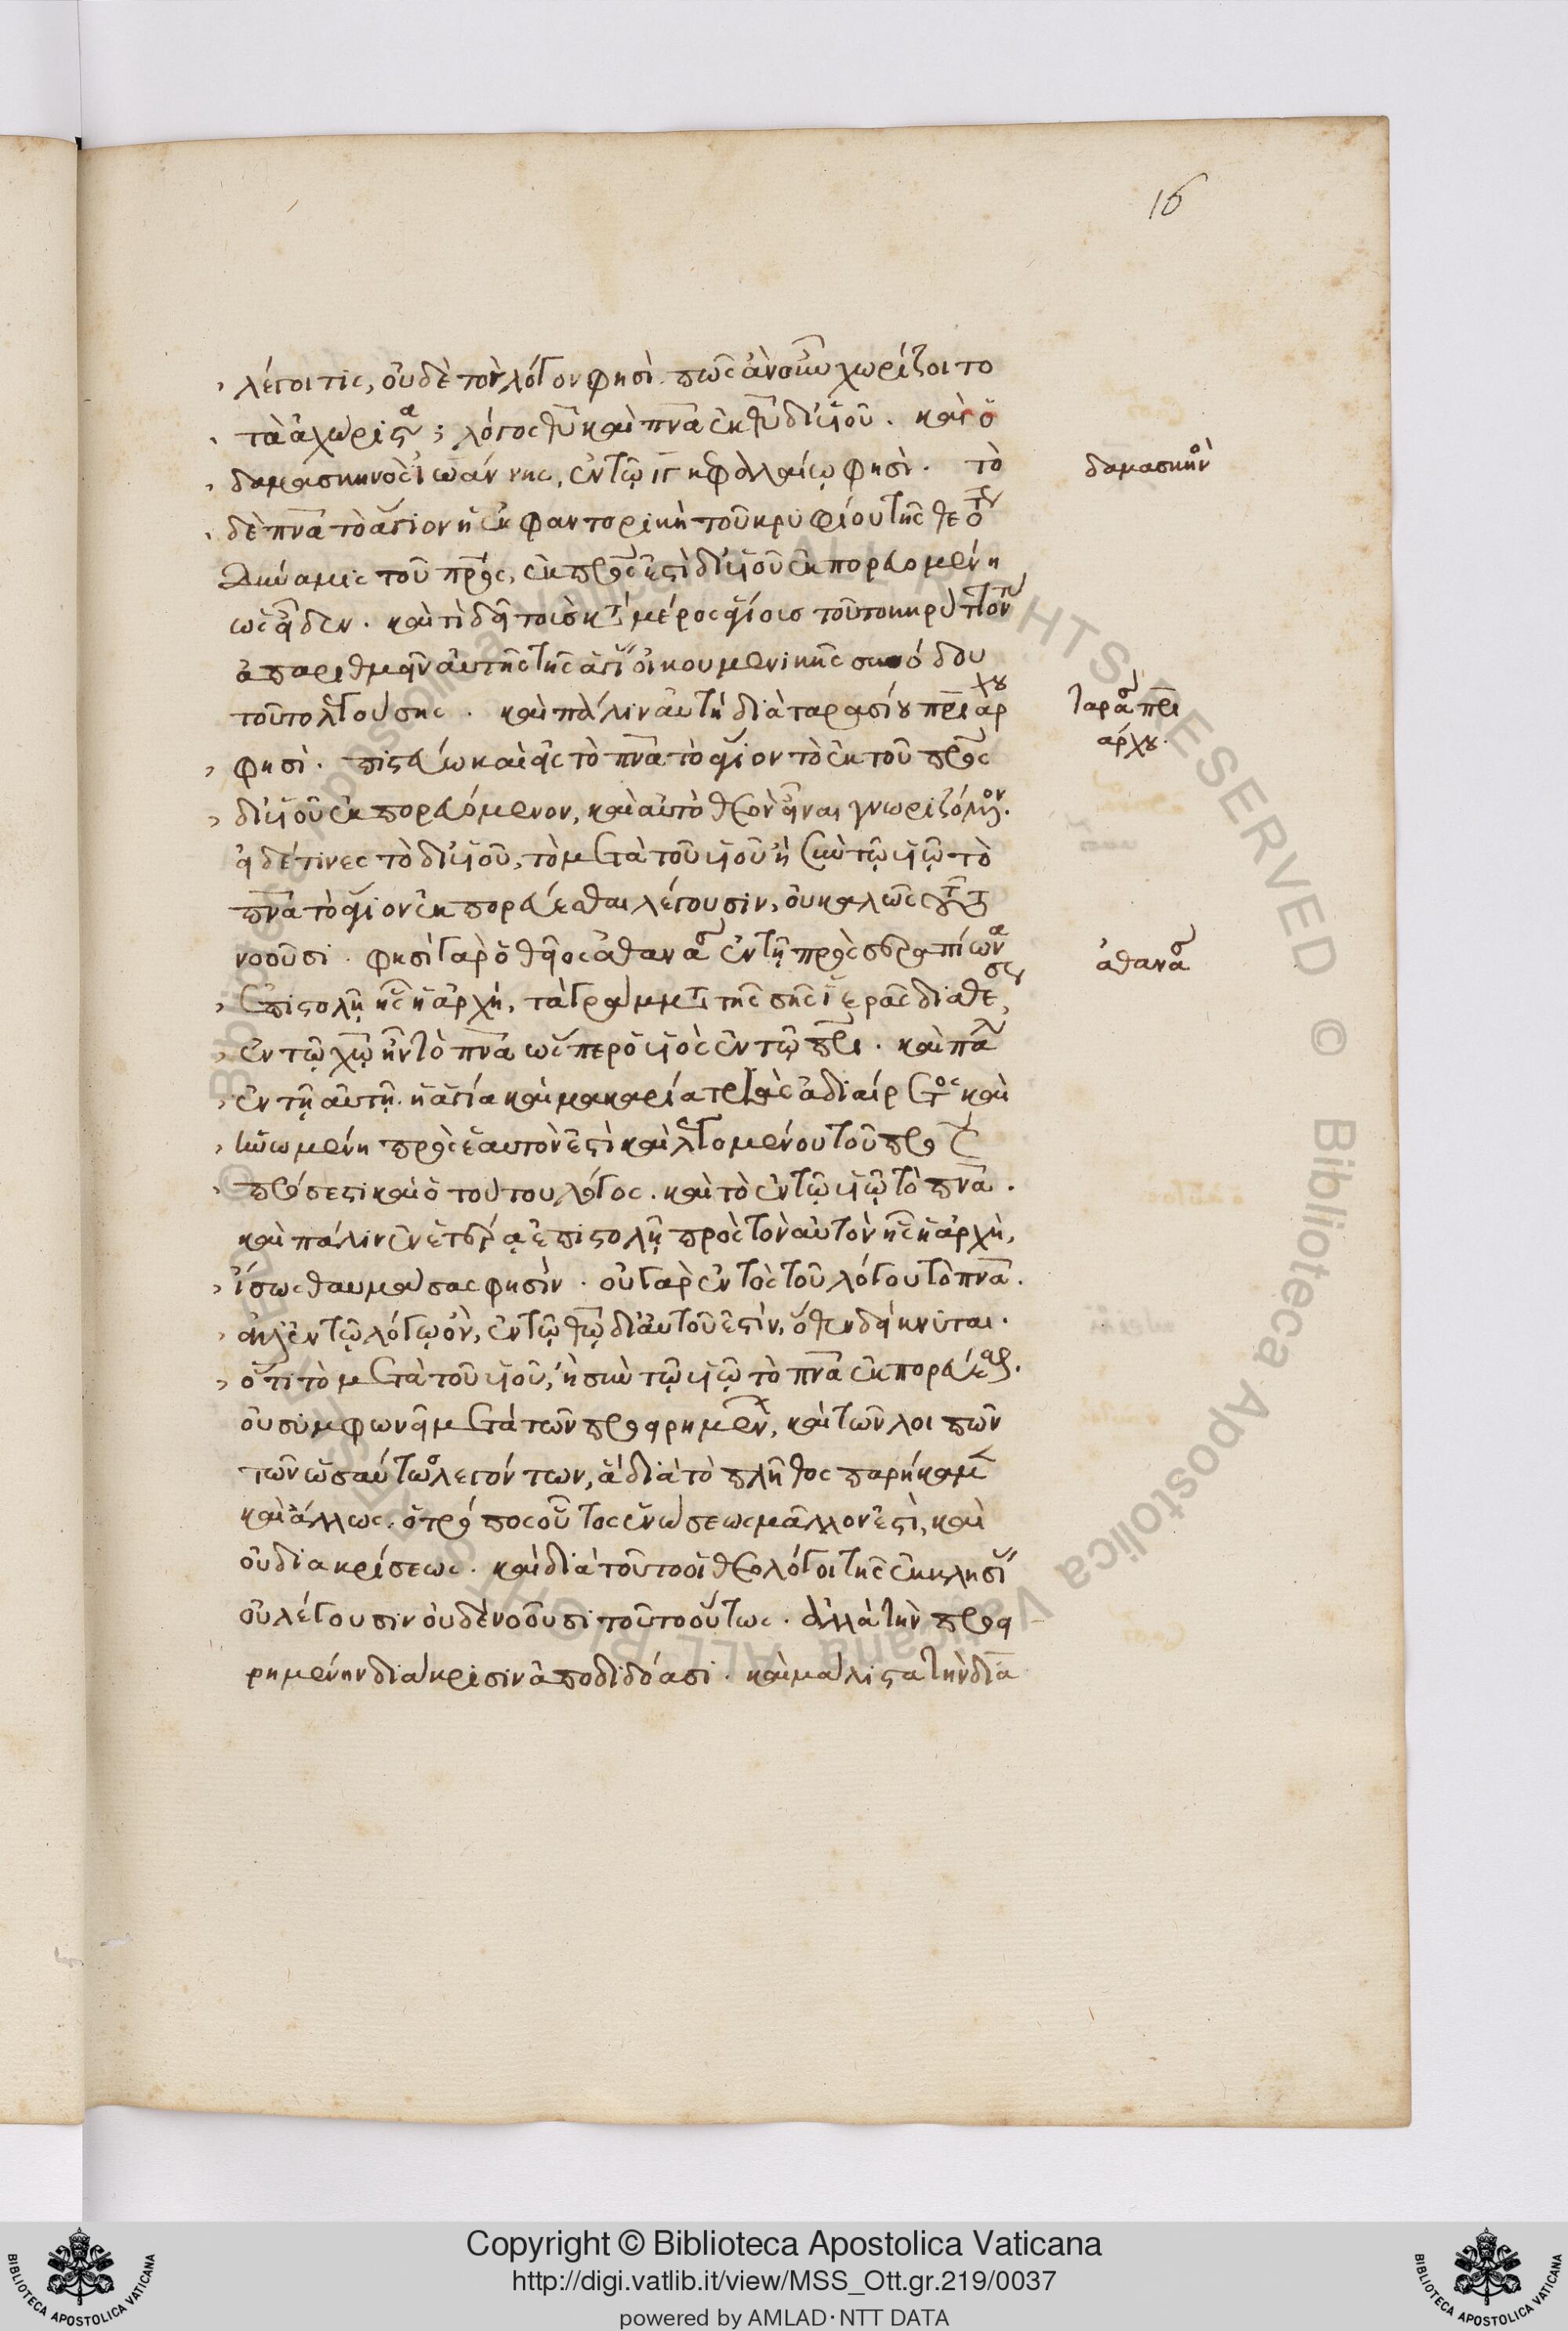 16
λέγοι τίς, οὐδὲ τὸν λόγον φησὶ. πῶς ἂν οὖν χωρίζοιτο
τὰ ἀχώριστα; λόγος θῦ καὶ πνα ἐκ θῦ δι' υἱοῦ. καὶ ὁ
δαμασκηνὸς ἰωάννης, ἐν τῷ ιγ κεφαλαίῳ φησὶ. τὸ
δαμασκηνὸ
δὲ πνα τὸ ἅγιον ἡ ἐκφαντορικὴ τοῦ κρυφίου τῆς θεότητο
δύναμις τοῦ πρς, ἐκ πρς ἐστὶ δι' υἱοῦ ἐκπορευομένη
ὡς οἶδεν. καὶ τί δεῖ τοὺς κατὰ μέρος ἁγίους τοῦτο κηρύττον
ἀπαριθμεῖν αὐτῆς τῆς ἁγί οἰκουμενικῆς συνόδου
τοῦτο λεγούσης. καὶ πάλιν αὐτὴ διὰ ταρασίου πριάρχου
ταρασ πρι
άρχου.
φησὶ. πιστεύω καὶ εἰς τὸ πνα τὸ ἅγιον τὸ ἐκ τοῦ πρς
δι' υἱοῦ ἐκπορευόμενον, καὶ αὐτὸ θεὸν εἶναι γνωριζόμενον.
εἰ δέ τινες τὸ δι' υἱοῦ, τὸ μετὰ τοῦ υἱοῦ ἢ σὺν τῷ υἱῷ τὸ
πνα τὸ ἅγιον ἐκπορεύεσθαι λέγουσιν, οὐ καλῶς τοῦτο
νοοῦσι. φησὶ γὰρ ὁ θεῖος ἀθανασ ἐν τῇ πρὸς σεραπίωνα
ἀθανασ
ἐπιστολῇ ἧς ἡ ἀρχή, τὰ γράμματα τῆς σῆς ἱερᾶς διαθέσε,
ἐν τῷ χῶ ἦν τὸ πνα ὥσπερ ὁ υἱὸς ἐν τῷ πρι. καὶ πάλ
ἐν τῇ αὐτῇ. ἡ ἁγία καὶ μακαρία τριὰς ἀδιαίρετος καὶ
ἡνωμένη πρὸς ἑαυτόν ἐστὶ καὶ λεγομένου τοῦ πρς
πρόσεστι καὶ ὁ τούτου λόγος. καὶ τὸ ἐν τῷ υἱῷ τὸ πνα.
καὶ πάλιν ἐν ἑτέρᾳ ἐπιστολῇ πρὸς τὸν αὐτὸν ἧς ἡ ἀρχὴ,
ἴσως θαυμάσας φησὶν. οὐ γὰρ ἐντὸς τοῦ λόγου τὸ πνα.
ἀλλ' ἐν τῷ λόγῳ ὂν, ἐν τῷ θῶ δι' αὐτοῦ ἐστίν, ὅθεν δείκνυται.
ὅτι τὸ μετὰ τοῦ υἱοῦ, ἢ σὺν τῷ υἱῷ τὸ πνα ἐκπορεύεσθαι.
οὐ συμφωνεῖ μετὰ τῶν προειρημένων, καὶ τῶν λοιπῶν
τῶν ὡσαύτως λεγόντων, ἃ διὰ τὸ πλῆθος παρήκαμεν
καὶ ἄλλως. ὁ τρόπος οὗτος ἑνώσεως μᾶλλον ἐστὶ, καὶ
οὐ διακρίσεως. καὶ διὰ τοῦτο οἱ θεολόγοι τῆς ἐκκλησί
οὐ λέγουσιν οὐδὲ νοοῦσι τοῦτο οὕτως. ἀλλὰ τὴν προει
ρημένην διάκρισιν ἀποδιδόασι. καὶ μάλιστα τὴν διὰ
Copyright © Biblioteca Apostolica Vaticana
http://digi.vatlib.it/view/MSS_Ott.gr.219/0037
powered by AMLAD·NTT DATA